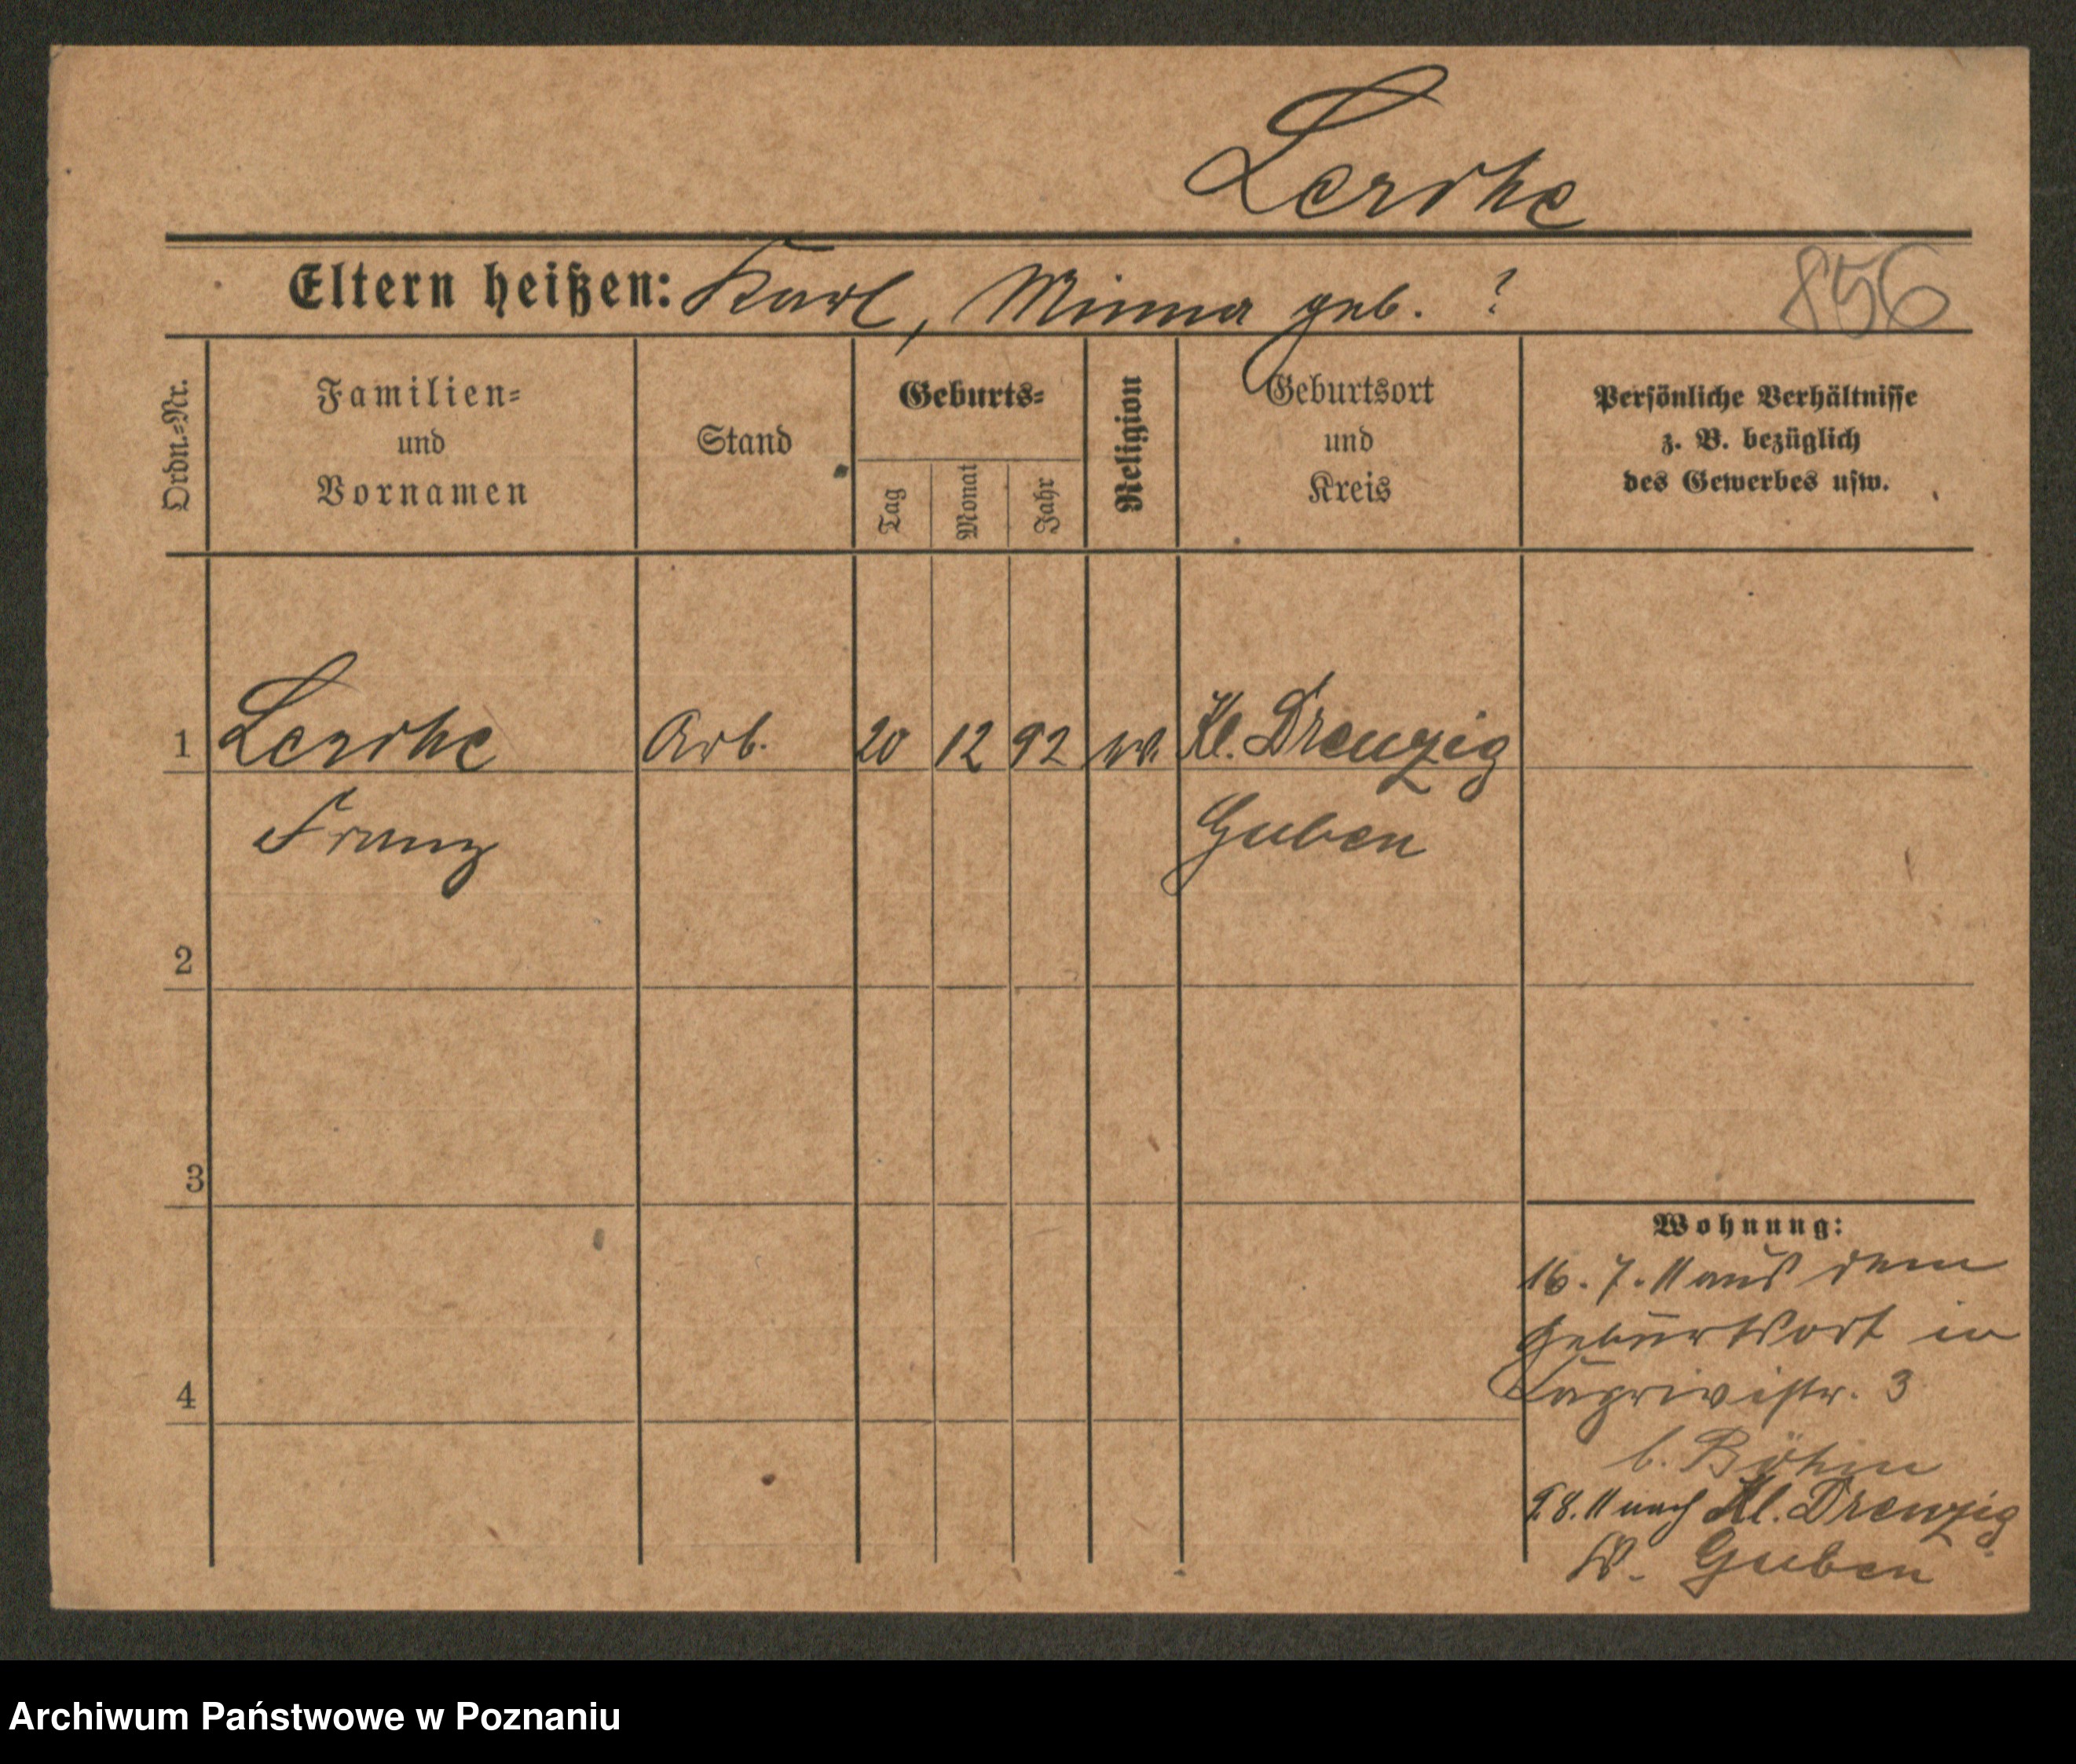 Lerche
Eltern heißen: Karl, Minna geb. ?
856
Ordn.=Nr.
Familien=
und
Vornamen
Stand
Geburts=
Tag
Monat
Jahr
Religion
Geburtsort
und
Kreis
Persönliche Verhältnisse
z. B. bezüglich
des Gewerbes usw.
1 Lerche Arb. 20 12 92 ev. Kl. Drenzig
Franz Guben
2
3
4
Wohnung:
16. 7. 11 aus dem
Geburtsort in
Caprivistr. 3
b. Böhm
9. 8. 11 nach Kl. Drenzig
Kr. Guben
Archiwum Państwowe w Poznaniu